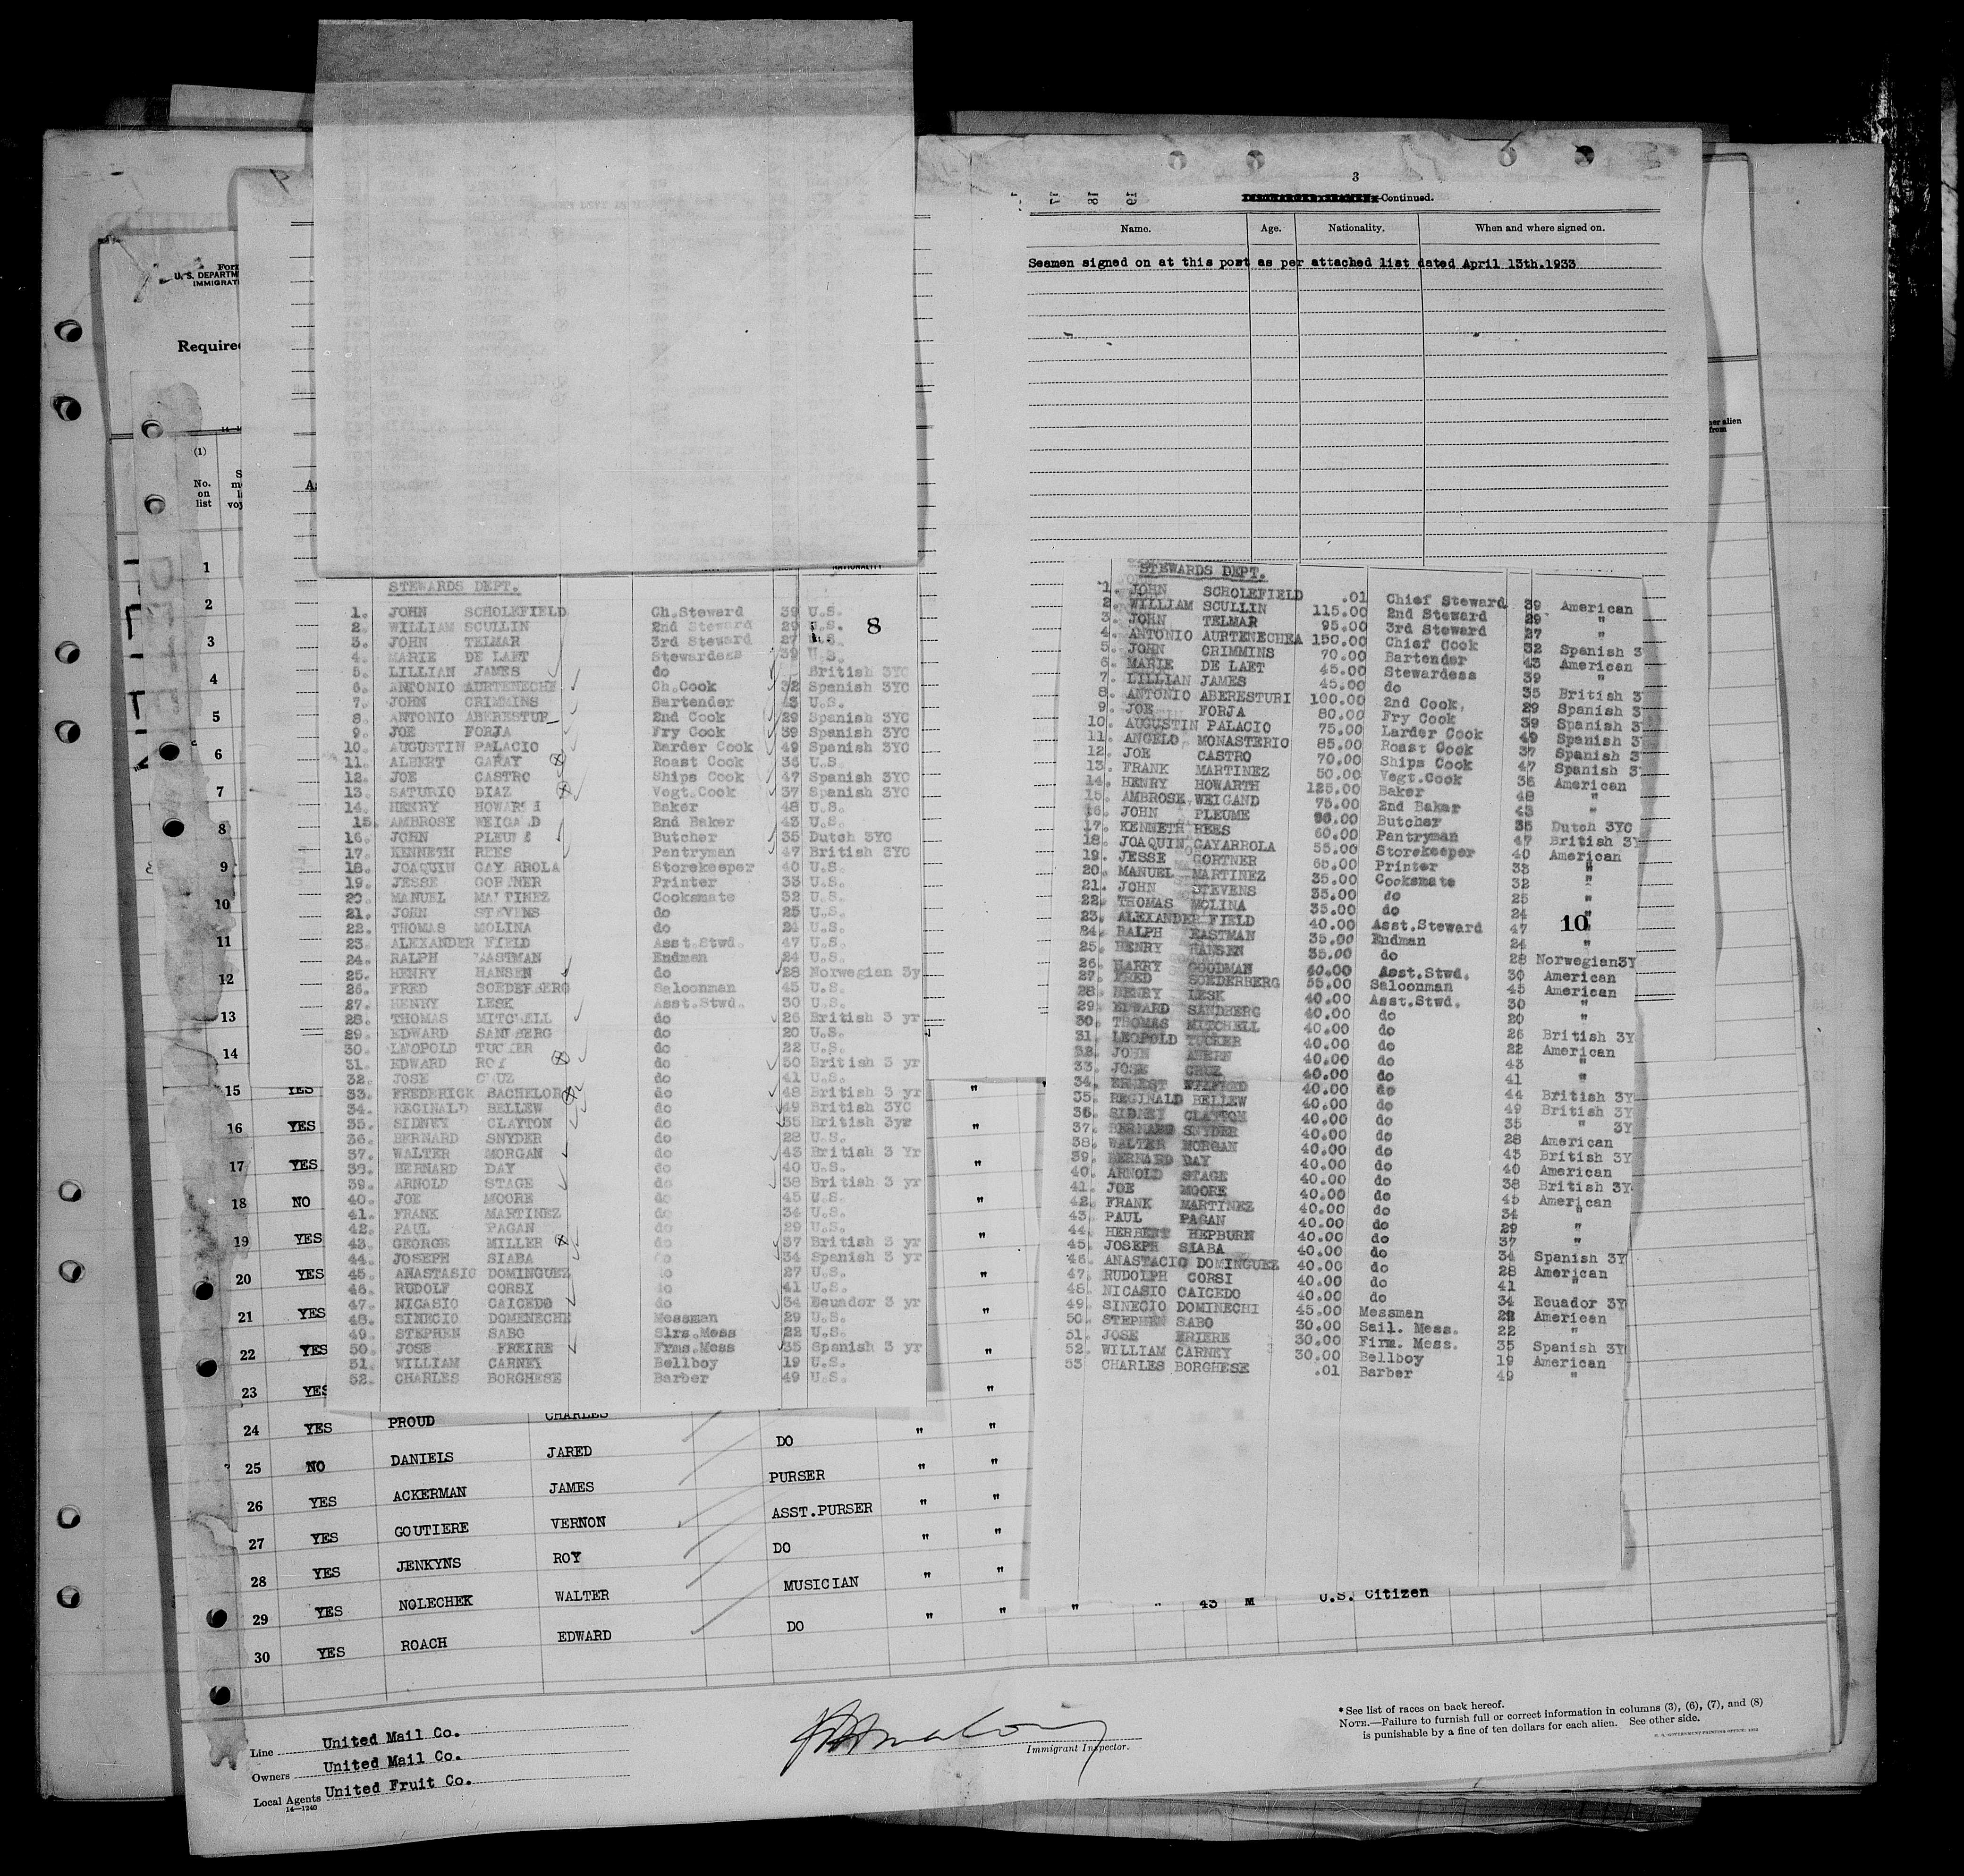 3
DISCHARGED SEAMEN-Continued.
Name. Age. Nationality. When and where signed on.
Seamen signed on at this port as per attached list dated April 13th.1933
U. S. DEPARTM
IMMIGRAT
Require
(1)
No. on list
STEWARDS DEPT.
8
1. JOHN SCHOLEFIELD Ch.Steward 39 U.S.
2. WILLIAM SCULLIN 2nd Steward 29 U.S.
3. JOHN TELMAR 3rd Steward 27 U.S.
4. MARIE DE LAET Stewardess 39 U.S.
5. LILLIAN JAMES do British 3YC
6. ANTONIO AURTENECHE Ch.Cook 32 Spanish 3YC
7. JOHN CRIMMINS Bartender 43 U.S.
8. ANTONIO ABERESTUR 2nd Cook 29 Spanish 3YC
9. JOE FORJA Fry Cook 39 Spanish 3YC
10. AUGUSTIN PALACIO Larder Cook 49 Spanish 3YC
11. ALBERT GARAY Roast Cook 36 U.S.
12. JOE CASTRO Ships Cook 47 Spanish 3YC
13. SATURIO DIAZ Vegt.Cook 37 Spanish 3YC
14. HENRY HOWARTH Baker 48 U.S.
15. AMBROSE WEIGAND 2nd Baker 43 U.S.
16. JOHN PLEUME Butcher 35 Dutch 3YC
17. KENNETH REES Pantryman 47 British 3YC
18. JOAQUIN GAYARROLA Storekeeper 40 U.S.
19. JESSE GORTNER Printer 33 U.S.
20. MANUEL MARTINEZ Cooksmate 32 U.S.
21. JOHN STEVENS do 25 U.S.
22. THOMAS MOLINA do 24 U.S.
23. ALEXANDER FIELD Asst.Stwd. 47 U.S.
24. RALPH EASTMAN Endman 24 U.S.
25. HENRY HANSEN do 28 Norwegian 3y
26. FRED SOEDERBERG Saloonman 45 U.S.
27. HENRY LESK Asst.Stwd. 30 U.S.
28. THOMAS MITCHELL do 26 British 3 yr
29. EDWARD SANDBERG do 20 U.S.
30. LEOPOLD TUCKER do 22 U.S.
31. EDWARD ROY do 50 British 3 yr
32. JOSE CRUZ do 41 U.S.
33. FREDERICK BACHELOR do 48 British 3 yr
34. REGINALD BELLEW do 49 British 3YC
35. SIDNEY CLAYTON do 35 British 3yr
36. BERNARD SNYDER do 28 U.S.
37. WALTER MORGAN do 43 British 3 Yr
38. BERNARD DAY do 40 U.S.
39. ARNOLD STAGE do 38 British 3 yr
40. JOE MOORE do 45 U.S.
41. FRANK MARTINEZ do 34 U.S.
42. PAUL PAGAN do 29 U.S.
43. GEORGE MILLER do 37 British 3 yr
44. JOSEPH SIABA do 34 Spanish 3 yr
45. ANASTASIO DOMINGUEZ do 27 U.S.
46. RUDOLF CORSI do 41 U.S.
47. NICASIO CAICEDO do 34 Ecuador 3 yr
48. SINECIO DOMENECHE Messman 29 U.S.
49. STEPHEN SABO Slrs.Mess 22 U.S.
50. JOSE FREIRE Frms.Mess 35 Spanish 3 yr
51. WILLIAM CARNEY Bellboy 19 U.S.
52. CHARLES BORGHESE Barber 49 U.S.
STEWARDS DEPT.
10
1. JOHN SCHOLEFIELD .01 Chief Steward 39 American
2. WILLIAM SCULLIN 115.00 2nd Steward 29 "
3. JOHN TELMAR 95.00 3rd Steward 27 "
4. ANTONIO AURTENECHEA 150.00 Chief Cook 32 Spanish 3
5. JOHN CRIMMINS 70.00 Bartender 43 American
6. MARIE DE LAET 45.00 Stewardess 39 "
7. LILLIAN JAMES 45.00 do 35 British 3
8. ANTONIO ABERESTURI 100.00 2nd Cook, 29 Spanish 3
9. JOE FORJA 80.00 Fry Cook 39 Spanish 3
10. AUGUSTIN PALACIO 75.00 Larder Cook 49 Spanish 3
11. ANGELO MONASTERIO 85.00 Roast Cook 37 Spanish 3
12. JOE CASTRO 70.00 Ships Cook 47 Spanish 3
13. FRANK MARTINEZ 50.00 Vegt.Cook 36 American
14. HENRY HOWARTH 125.00 Baker 48 "
15. AMBROSE WEIGAND 75.00 2nd Baker 43 "
16. JOHN PLEUME 90.00 Butcher 35 Dutch 3YC
17. KENNETH REES 60.00 Pantryman 47 British 3Y
18. JOAQUIN GAYARROLA 55.00 Storekeeper 40 American
19. JESSE GORTNER 65.00 Printer 33 "
20. MANUEL MARTINEZ 35.00 Cooksmate 32 "
21. JOHN STEVENS 35.00 do 25 "
22. THOMAS MOLINA 35.00 do 24 "
23. ALEXANDER FIELD 40.00 Asst.Steward 47 "
24. RALPH EASTMAN 35.00 Endman 24 "
25. HENRY HANSEN 35.00 do 28 Norwegian3Y
26. HARRY GOODMAN 40.00 Asst.Stwd. 30 American
27. FRED SOEDERBERG 55.00 Saloonman 45 American
28. HENRY LESK 40.00 Asst.Stwd. 30 "
29. EDWARD SANDBERG 40.00 do 20 "
30. THOMAS MITCHELL 40.00 do 26 British 3Y
31. LEOPOLD TUCKER 40.00 do 22 American
32. JOHN AHERN 40.00 do 43 "
33. JOSE CRUZ 40.00 do 41 "
34. ERNEST WILFRED 40.00 do 44 British 3Y
35. REGINALD BELLEW 40.00 do 49 British 3Y
36. SIDNEY CLAYTON 40.00 do 35 " 3Y
37. BERNARD SNYDER 40.00 do 28 American
38. WALTER MORGAN 40.00 do 43 British 3Y
39. BERNARD DAY 40.00 do 40 American
40. ARNOLD STAGE 40.00 do 38 British 3Y
41. JOE MOORE 40.00 do 45 American
42. FRANK MARTINEZ 40.00 do 34 "
43. PAUL PAGAN 40.00 do 29 "
44. HERBERT HEPBURN 40.00 do 37 "
45. JOSEPH SIABA 40.00 do 34 Spanish 3Y
46. ANASTACIO DOMINGUEZ 40.00 do 28 American
47. RUDOLPH CORSI 40.00 do 41 "
48. NICASIO CAICEDO 40.00 do 34 Ecuador 3Y
49. SINECIO DOMINECHI 45.00 Messman 29 American
50. STEPHEN SABO 30.00 Sail. Mess. 22 "
51. JOSE FRIERE 30.00 Firm. Mess. 35 Spanish 3Y
52. WILLIAM CARNEY 30.00 Bellboy 19 American
53 CHARLES BORGHESE .01 Barber 49 "
1
2
3
4
5
6
7
8
9
10
11
12
13
14
15 YES
16 YES
17 YES
18 NO
19 YES
20 YES
21 YES
22 YES
23 YES
24 YES PROUD CHARLES
25 NO DANIELS JARED DO " "
26 YES ACKERMAN JAMES PURSER " "
27 YES GOUTIERE VERNON ASST.PURSER " "
28 YES JENKYNS ROY DO " "
29 YES NOLECHEK WALTER MUSICIAN " "
30 YES ROACH EDWARD DO " " " " 43 M U.S. Citizen
Line United Mail Co.
Owners United Mail Co.
Local Agents United Fruit Co.
14—1240
Immigrant Inspector.
* See list of races on back hereof.
NOTE.—Failure to furnish full or correct information in columns (3), (6), (7), and (8)
is punishable by a fine of ten dollars for each alien. See other side.